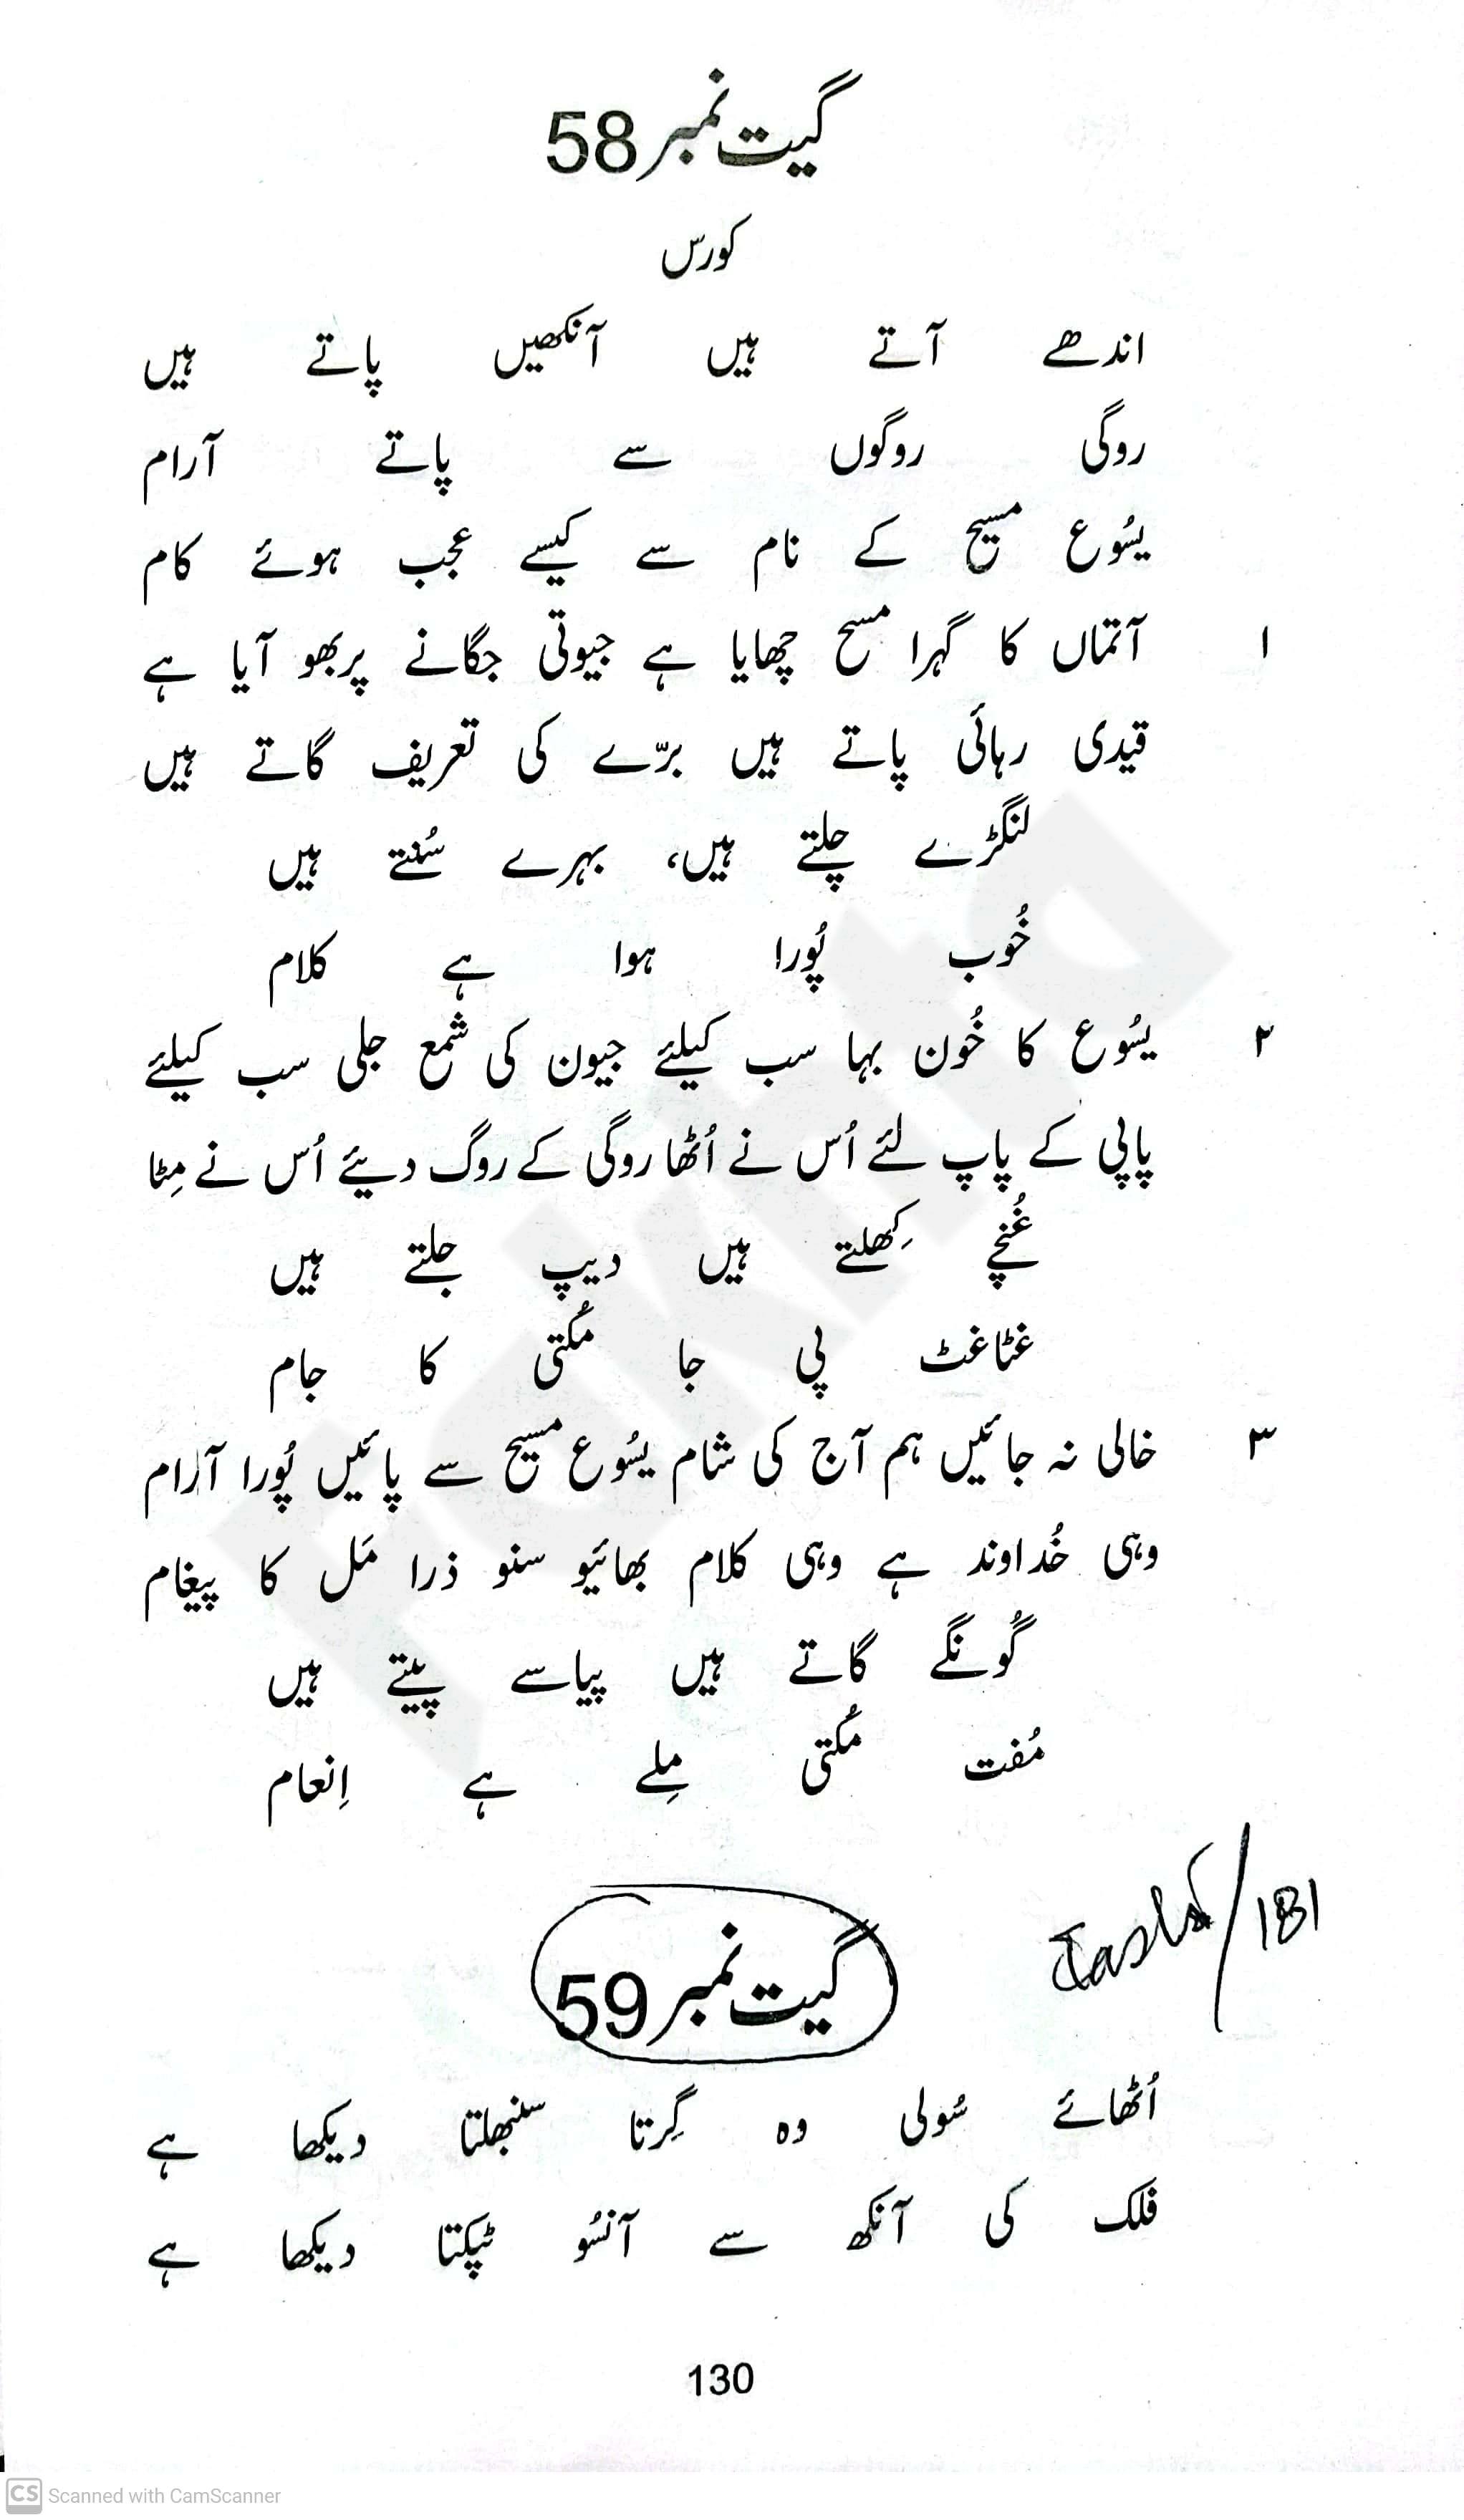 گیت نمبر 58
کورس
اندھے آتے ہیں آنکھیں پاتے ہیں
روگی روگوں سے پاتے آرام
یسُوع مسیح کے نام سے کیسے عجب ہوئے کام
۱ آتماں کا گہرا مسح چھایا ہے جیوتی جگانے پربھو آیا ہے
قیدی رہائی پاتے ہیں برّے کی تعریف گاتے ہیں
لنگڑے چلتے ہیں، بہرے سُنتے ہیں
خُوب پُورا ہوا ہے کلام
۲ یسُوع کا خُون بہا سب کیلئے جیون کی شمع جلی سب کیلئے
پاپی کے پاپ لئے اُس نے اُٹھا روگی کے روگ دیئے اُس نے مِٹا
غُنچے کِھلتے ہیں دیپ جلتے ہیں
غٹاغٹ پی جا مُکتی کا جام
۳ خالی نہ جائیں ہم آج کی شام یسُوع مسیح سے پائیں پُورا آرام
وہی خُداوند ہے وہی کلام بھائیو سنو ذرا مَل کا پیغام
گُونگے گاتے ہیں پیاسے پیتے ہیں
مُفت مُکتی مِلے ہے اِنعام
181
گیت نمبر 59
اُٹھائے سُولی وہ گِرتا سنبھلتا دیکھا ہے
فلک کی آنکھ سے آنسُو ٹپکتا دیکھا ہے
130
CS Scanned with CamScanner